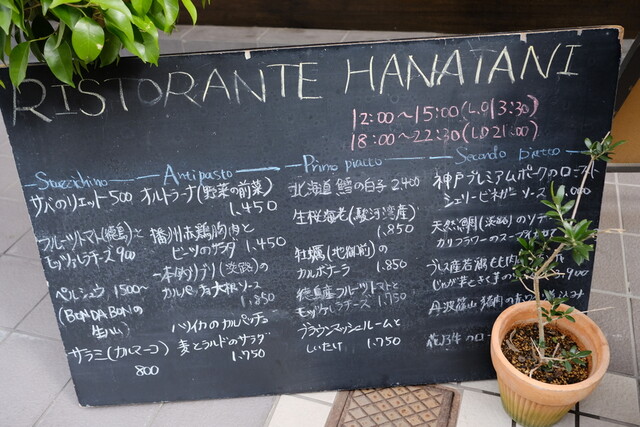 RISTORANTE HANATANI
12:00〜15:00(L.O 13:30)
18:00〜22:30(L.O 21:00)
Stuzzichino
サバのリエット 500
フルーツトマト(徳島)と
モッツァレラチーズ 900
ペルシュウ 1500〜
(BONDABONの
生ハム)
サラミ(カルマーニ)
800
Antipasto
オルトラーナ(野菜の前菜)
1.450
播州赤鶏胸肉と
ビーツのサラダ 1.450
一本釣ブリ(淡路)の
カルパッチョ大根ソース
1.850
バツイカのカルパッチョ
麦とラルドのサラダ
1.750
Primo piacco
北海道 鱈の白子 2400
生桜海老(駿河湾産)
1.850
牡蠣(地御前)の
カルボナーラ 1.850
徳島産フルーツトマトと
モッツァレラチーズ 1.750
ブラウンマッシュルームと
しいたけ 1.750
Secondo piacco
神戸プレミアムポークのロースト
シェリービネガーソース
天然鯛(淡路)のソテー
カリフラワーのスープ
ブレス産若鶏もも肉
じゃが芋ときく芋の 900
丹波篠山 猪肉の赤ワイン